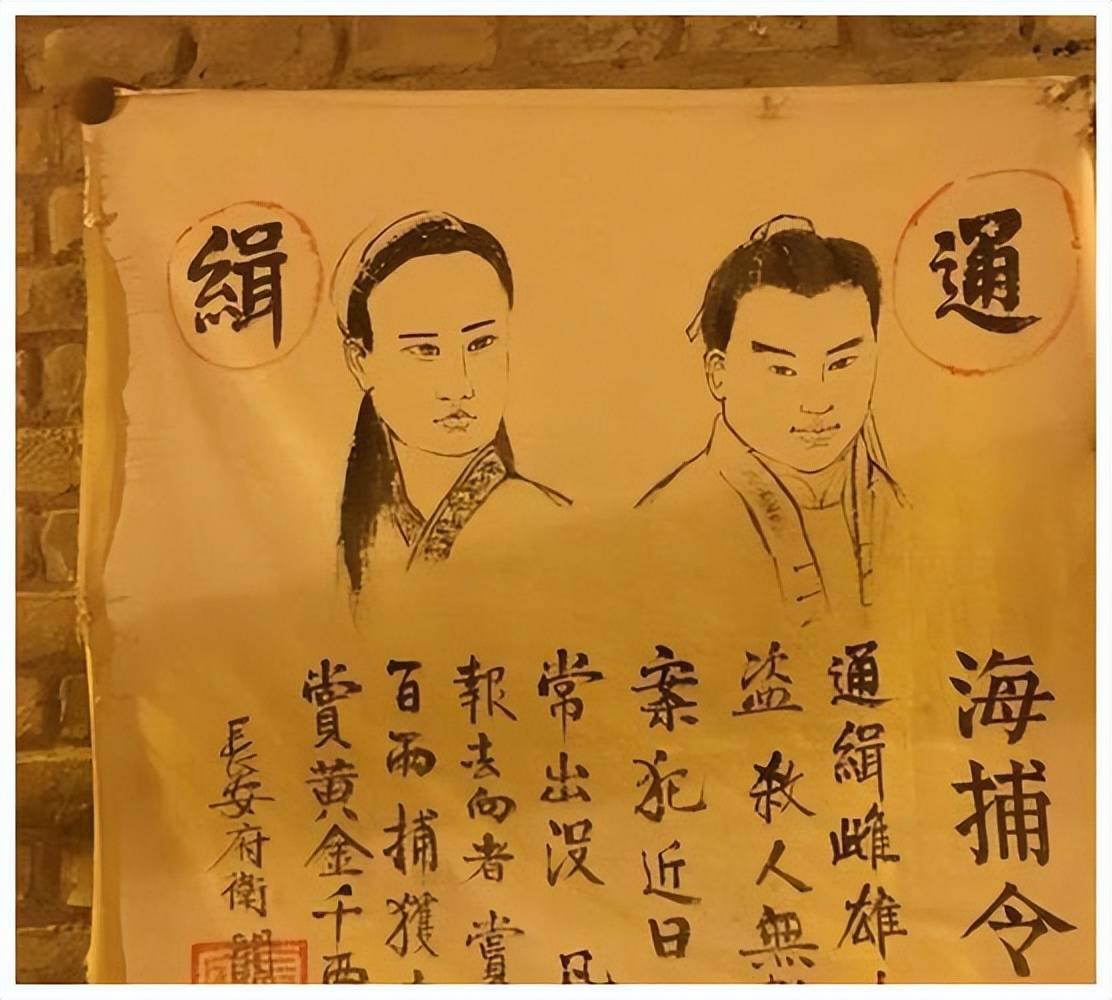 通緝
海捕令
通緝雌雄
盜殺人無
案犯近日
常出没凡
報去向者賞
百兩捕獲
賞黃金千两
長安府衛